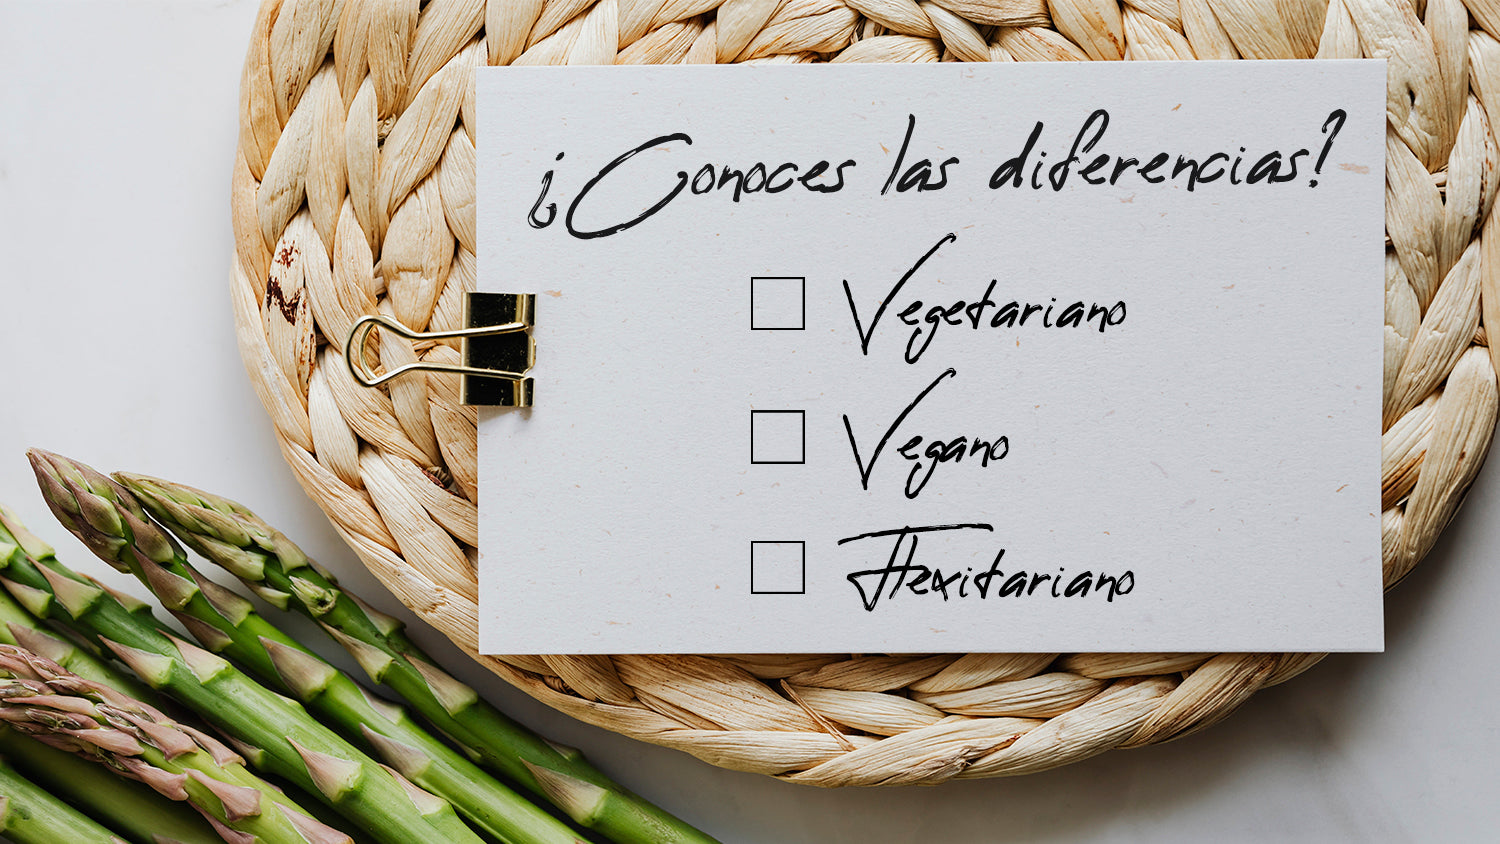 ¿Conoces las diferencias?
Vegetariano
Vegano
Flexitariano